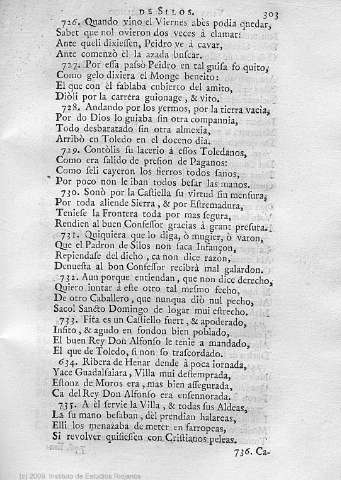 DE SILOS. 303
726. Quando vino el Viernes abes podia quedar,
Sabet que nol ovieron dos veces à clamar:
Ante queli dixiessen, Peidro ve à cavar,
Ante comenzò èl la azada buscar.
727. Por essa passò Peidro en tal guisa fo quito,
Como gelo dixiera el Monge beneito:
El que con èl fablaba cubierto del amito,
Diòli por la carrera guionage, & vito.
728. Andando por los yermos, por la tierra vacia,
Por do Dios lo guiaba sin otra compannia,
Todo desbaratado sin otra almexia,
Arribò en Toledo en el doceno dia.
729. Contòlis su lacerio à essos Toledanos,
Como era salido de presion de Paganos:
Como seli cayeron los fierros todos sanos,
Por poco non le iban todos besar las manos.
730. Sonò por la Castiella su virtud sin mensura,
Por toda aliende Sierra, & por Estremadura,
Teniese la Frontera toda por mas segura,
Rendien al buen Confessor gracias à grant presura.
731. Quiquiera que lo diga, ò mugier, ò varon,
Que el Padron de Silos non saca Infançon,
Repiendase del dicho, ca non dice razon,
Denuesta al bon Confessor recibrà mal galardon.
732. Aun porque entiendan, que non dice derecho,
Quiero iuntar à este otro tal mesmo fecho,
De otro Caballero, que nunqua diò nul pecho,
Sacol Sancto Domingo de logar mui estrecho.
733. Fita es un Castiello fuert, & apoderado,
Infito, & agudo en fondon bien poblado,
El buen Rey Don Alfonso le tenie à mandado,
El que de Toledo, si non fo trascordado.
634. Ribera de Henar dende à poca iornada,
Yace Guadalfaiara, Villa mui destemprada,
Estonz de Moros era, mas bien assegurada,
Ca del Rey Don Alfonso era ensennorada.
735. A èl servie la Villa, & todas sus Aldeas,
La su mano besaban, dèl prendian halareas,
Elli los menazaba de meter en farropeas,
Si revolver quisiessen con Cristianos peleas.
736. Ca-
(c) 2009. Instituto de Estudios Riojanos